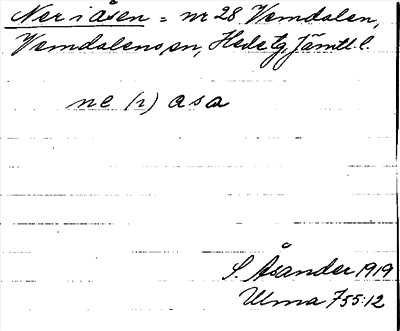 Ner i åsen = nr 28 Vemdalen,
Vemdalens sn, Hede tg, Jämtl. l.
ne (r) asa
S. Åsander 1919
Ulma 755:12